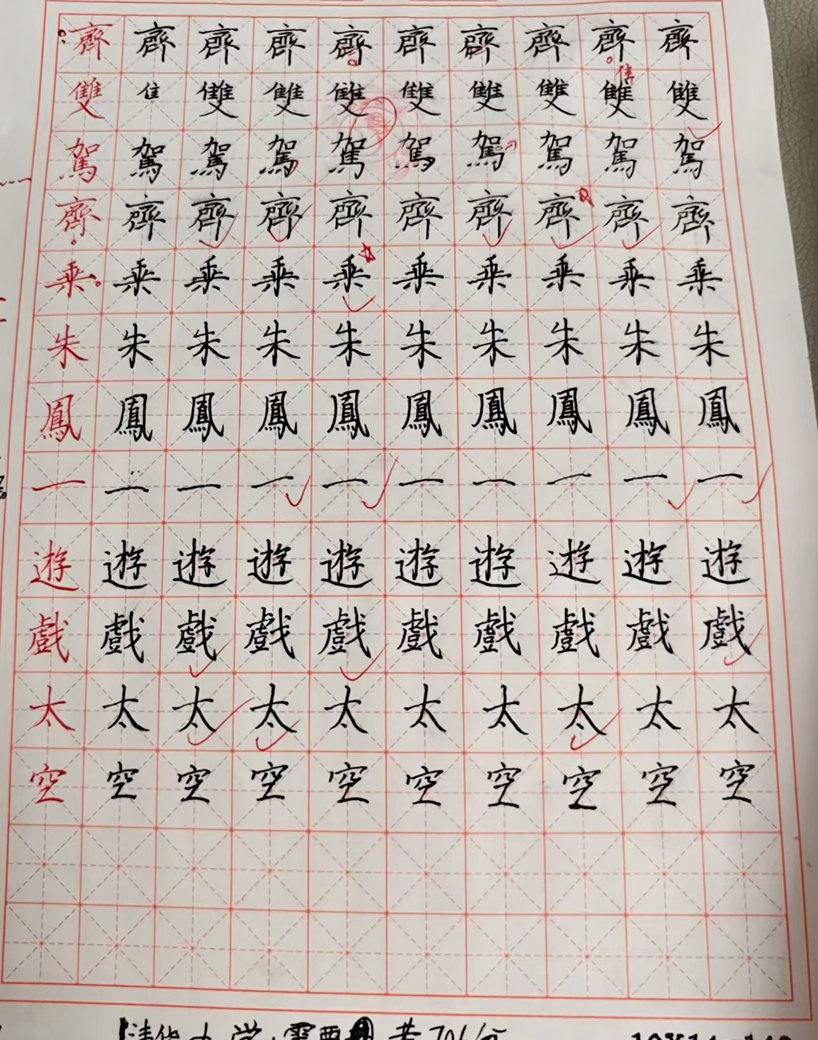 齊齊齊齊齊齊齊齊齊齊
雙隹雙雙雙雙雙雙雙雙
駕駕駕駕駕駕駕駕駕駕
齊齊齊齊齊齊齊齊齊齊
乘乘乘乘乘乘乘乘乘乘
朱朱朱朱朱朱朱朱朱朱
鳳鳳鳳鳳鳳鳳鳳鳳鳳鳳
一一一一一一一一一一
遊遊遊遊遊遊遊遊遊遊
戲戲戲戲戲戲戲戲戲戲
太太太太太太太太太太
空空空空空空空空空空
清华大学